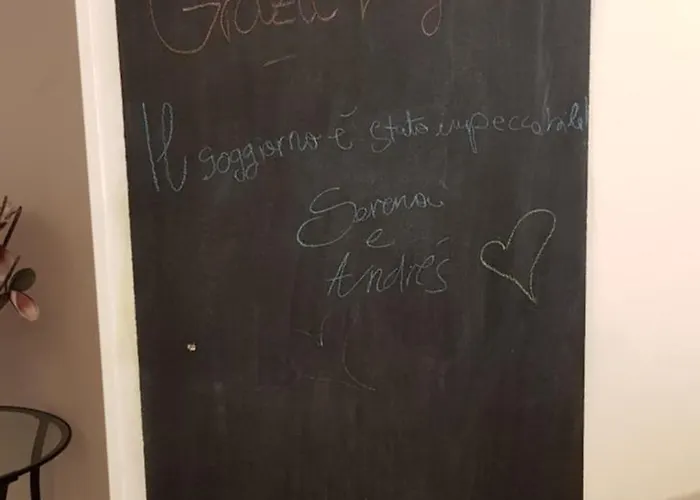 Grazie
Il soggiorno è stato impeccabile!
Serena
e
Andrés